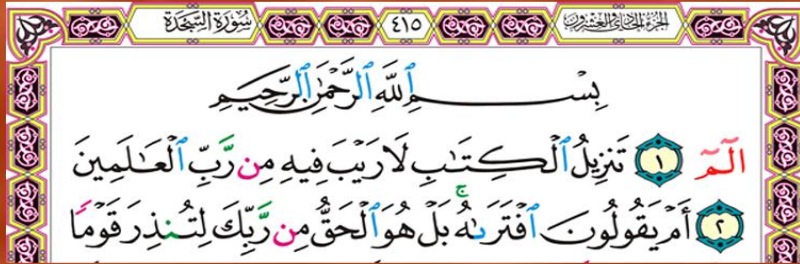 الجزء الحادي والعشرون ٤١٥ سُورَةُ السَّجْدَةِ
بِسْمِ ٱللَّهِ ٱلرَّحْمَٰنِ ٱلرَّحِيمِ
الٓمٓ ١ تَنزِيلُ ٱلْكِتَٰبِ لَا رَيْبَ فِيهِ مِن رَّبِّ ٱلْعَٰلَمِينَ
٢ أَمْ يَقُولُونَ ٱفْتَرَىٰهُ ۚ بَلْ هُوَ ٱلْحَقُّ مِن رَّبِّكَ لِتُنذِرَ قَوْمًا